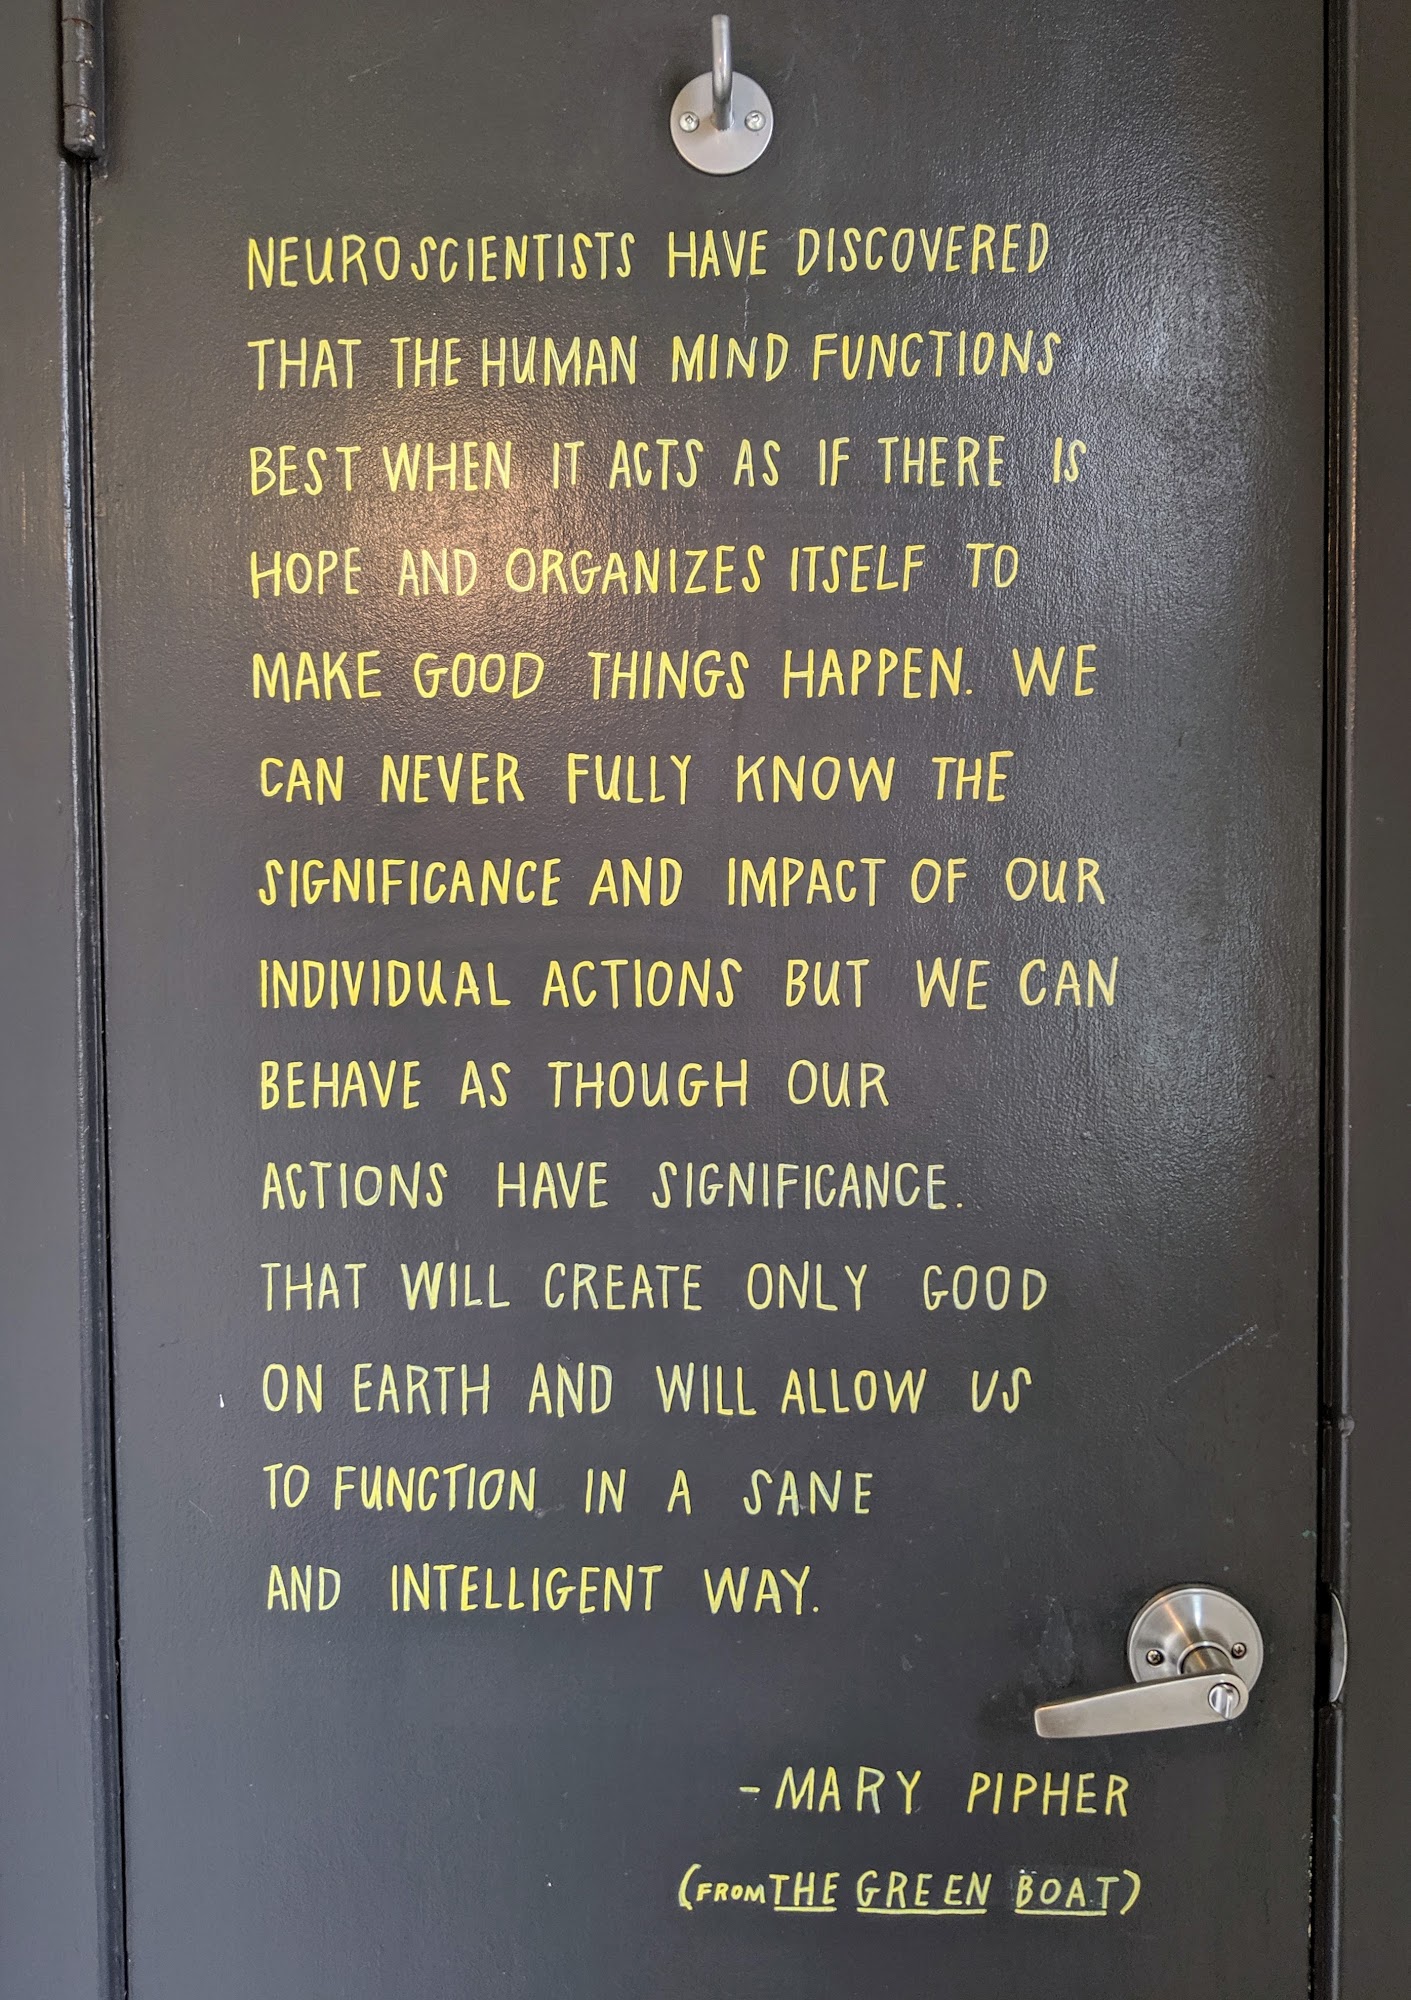 NEUROSCIENTISTS HAVE DISCOVERED
THAT THE HUMAN MIND FUNCTIONS
BEST WHEN IT ACTS AS IF THERE IS
HOPE AND ORGANIZES ITSELF TO
MAKE GOOD THINGS HAPPEN. WE
CAN NEVER FULLY KNOW THE
SIGNIFICANCE AND IMPACT OF OUR
INDIVIDUAL ACTIONS BUT WE CAN
BEHAVE AS THOUGH OUR
ACTIONS HAVE SIGNIFICANCE.
THAT WILL CREATE ONLY GOOD
ON EARTH AND WILL ALLOW US
TO FUNCTION IN A SANE
AND INTELLIGENT WAY.
- MARY PIPHER
(FROM THE GREEN BOAT)